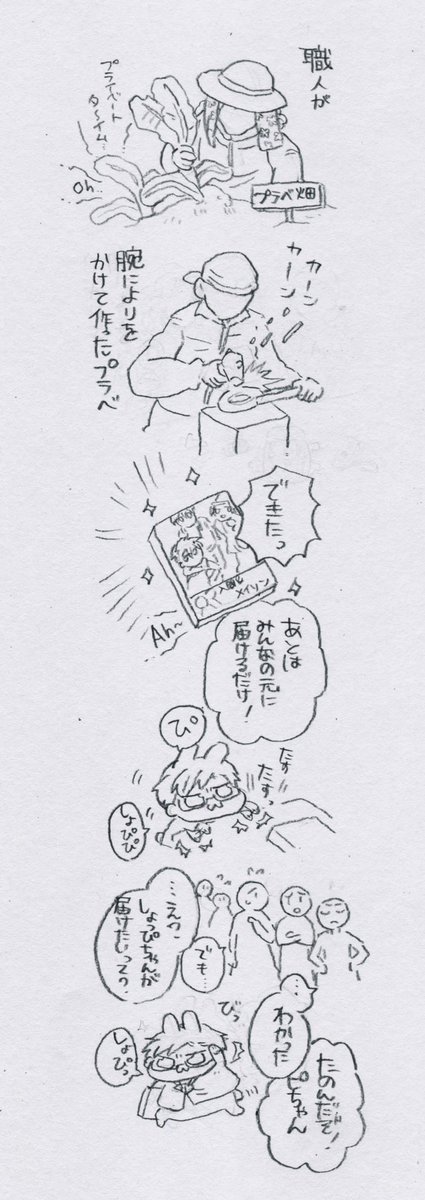 職人が
プライベート
タ〜イム…
Oh…
プラベ畑
カーン
カーン
腕によりを
かけて作ったプラベ
できたっ
メイソン
Ah~
あとは
みんなの元に
届けるだけ!
ぴ
たす
たすっ
しょぴぴ
…えっ?
しょっぴちゃんが
届けたいって?
でも…
…
わかった
たのんだぞ!
ピちゃん
びっ
しょぴっ